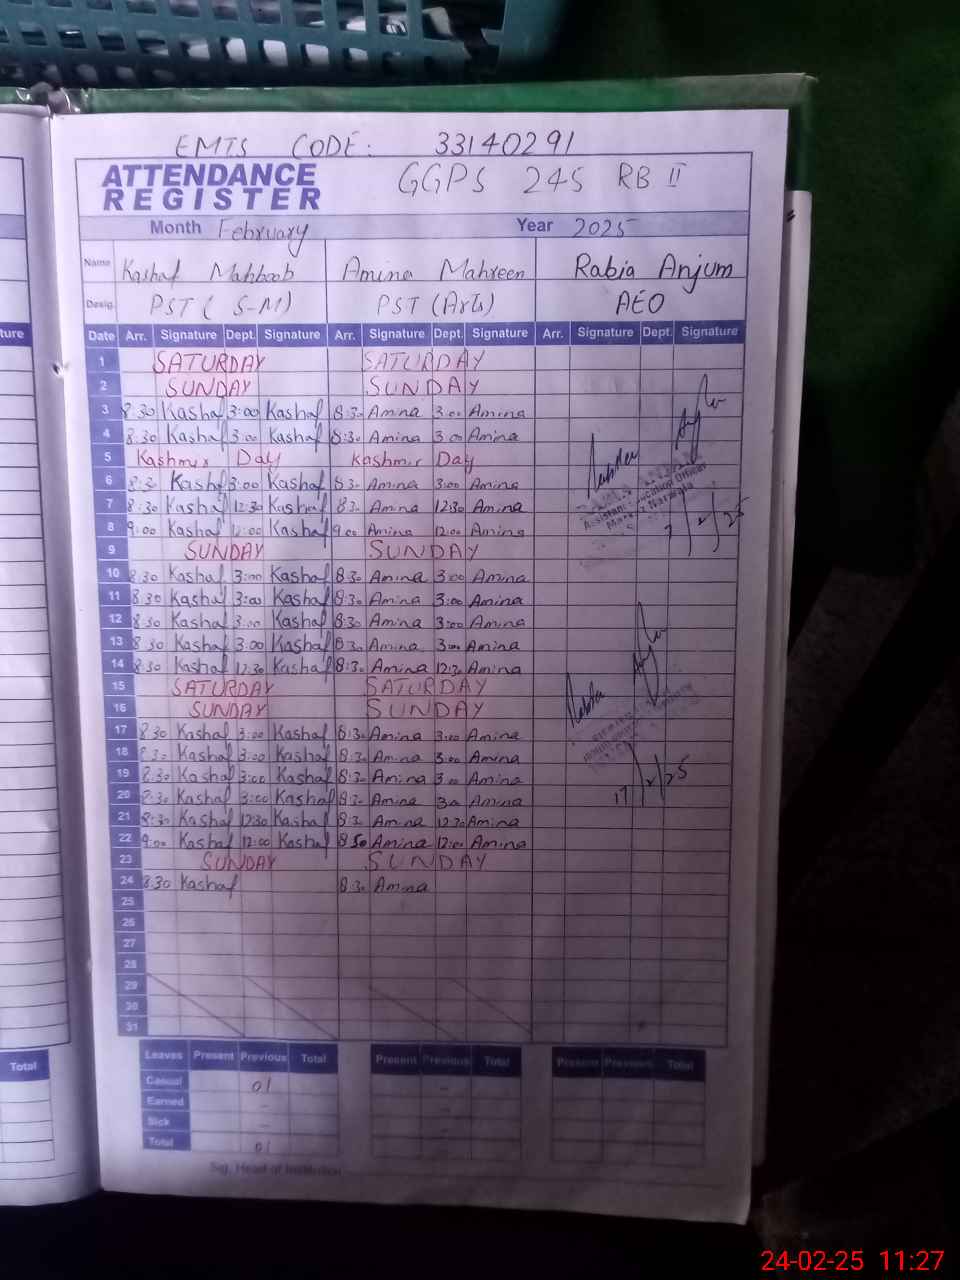 EMIS CODE: 33140291
ATTENDANCE REGISTER GGPS 245 RB II
Month February Year 2025
Name Kashaf Mahboob Amina Mahreen Rabia Anjum
Desig. PST (S-M) PST (Arts) AEO
ture Date Arr. Signature Dept. Signature Arr. Signature Dept. Signature Arr. Signature Dept. Signature
1 SATURDAY SATURDAY
2 SUNDAY SUNDAY
3 8:30 Kashaf 3:00 Kashaf 8:30 Amina 3:00 Amina
4 8:30 Kashaf 3:00 Kashaf 8:30 Amina 3:00 Amina
5 Kashmir Day Kashmir Day
6 8:30 Kashaf 3:00 Kashaf 8:30 Amina 3:00 Amina
7 8:30 Kashaf 12:30 Kashaf 8:30 Amina 12:30 Amina
8 9:00 Kashaf 12:00 Kashaf 9:00 Amina 12:00 Amina
Assistant Education Officer
7/2/25
9 SUNDAY SUNDAY
10 8:30 Kashaf 3:00 Kashaf 8:30 Amina 3:00 Amina
11 8:30 Kashaf 3:00 Kashaf 8:30 Amina 3:00 Amina
12 8:30 Kashaf 3:00 Kashaf 8:30 Amina 3:00 Amina
13 8:30 Kashaf 3:00 Kashaf 8:30 Amina 3:00 Amina
14 8:30 Kashaf 12:30 Kashaf 8:30 Amina 12:30 Amina
15 SATURDAY SATURDAY
16 SUNDAY SUNDAY
17 8:30 Kashaf 3:00 Kashaf 8:30 Amina 3:00 Amina
18 8:30 Kashaf 3:00 Kashaf 8:30 Amina 3:00 Amina
19 8:30 Kashaf 3:00 Kashaf 8:30 Amina 3:00 Amina
20 8:30 Kashaf 3:00 Kashaf 8:30 Amina 3:00 Amina
17/2/25
21 8:30 Kashaf 12:30 Kashaf 8:30 Amina 12:30 Amina
22 9:00 Kashaf 12:00 Kashaf 8:50 Amina 12:00 Amina
23 SUNDAY SUNDAY
24 8:30 Kashaf 8:30 Amina
25
26
27
28
29
30
31
Total Leaves Present Previous Total Present Previous Total Present Previous Total
Casual 01 -
Earned - -
Sick - -
Total 01 -
Sig. Head of Institution
24-02-25 11:27